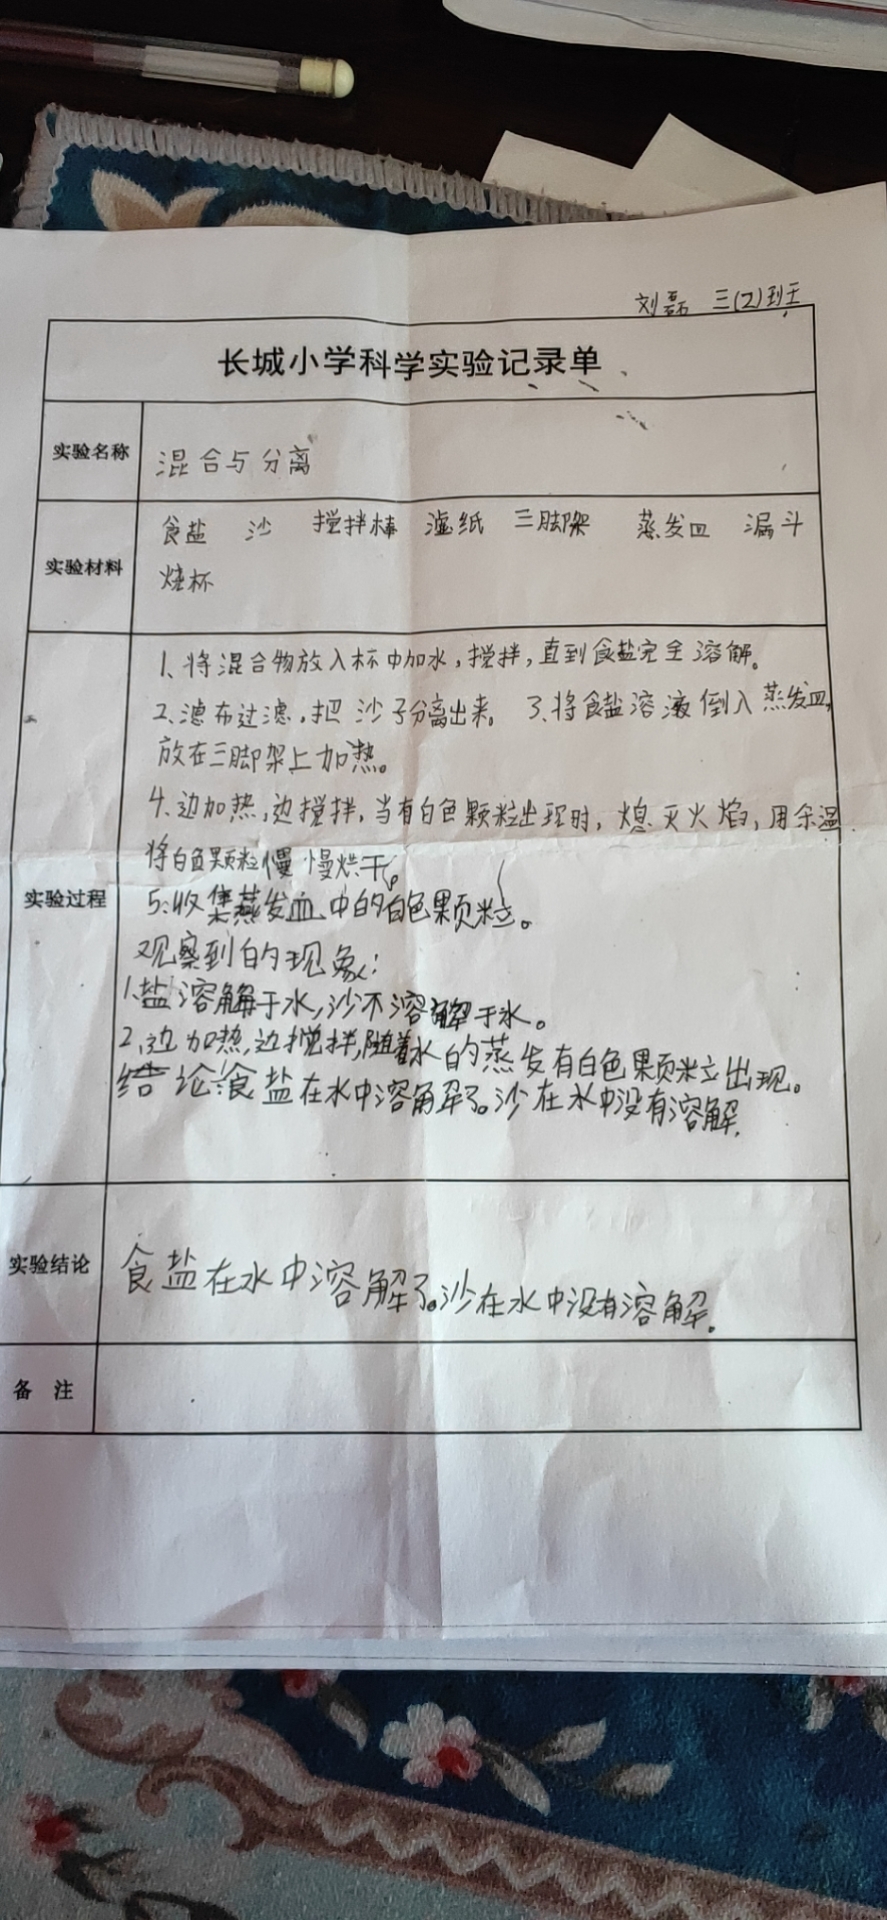 刘磊 三(2)班
长城小学科学实验记录单
实验名称
混合与分离
实验材料
食盐 沙 搅拌棒 滤纸 三脚架 蒸发皿 漏斗
烧杯
实验过程
1、将混合物放入杯中加水，搅拌，直到食盐完全溶解。
2、滤布过滤，把沙子分离出来。 3、将食盐溶液倒入蒸发皿，
放在三脚架上加热。
4、边加热，边搅拌，当有白色颗粒出现时，熄灭火焰，用余温
将白色颗粒慢慢烘干。
5、收集蒸发皿中的白色颗粒。
观察到的现象：
1、盐溶解于水，沙不溶解于水。
2、边加热，边搅拌，随着水的蒸发有白色颗粒出现。
结论：食盐在水中溶解了。沙在水中没有溶解.
实验结论
食盐在水中溶解了。沙在水中没有溶解.
备 注